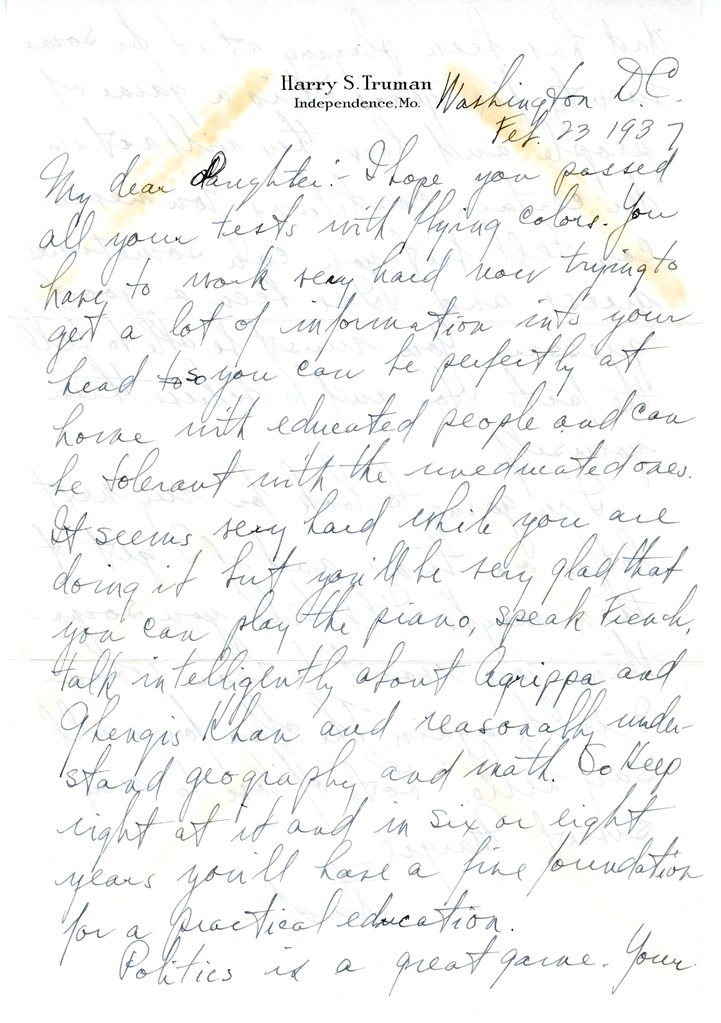 Harry S. Truman
Independence, Mo.
Washington D.C.
Feb. 23 1937
My dear Daughter:- I hope you passed
all your tests with flying colors. You
have to work very hard now trying to
get a lot of information into your
head to so you can be perfectly at
home with educated people and can
be tolerant with the uneducated ones.
It seems very hard while you are
doing it but you'll be very glad that
you can play the piano, speak French,
talk intelligently about Agrippa and
Ghengis Khan and reasonally under-
stand geography and math. So Keep
right at it and in six or eight
years you'll have a fine foundation
for a practical education.
Politics is a great game. Your